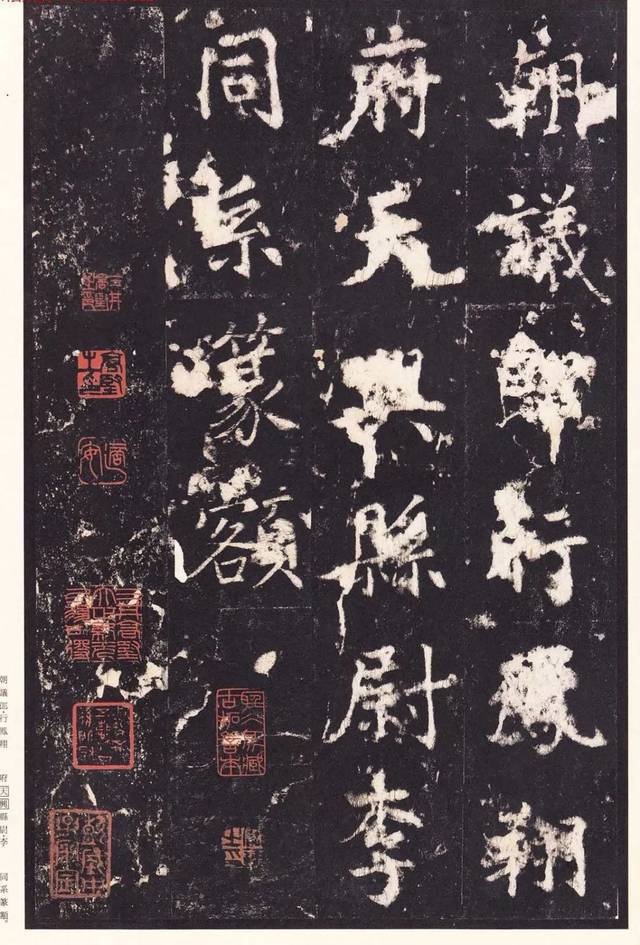 朝議郎行鳳翔
府天興縣尉李
同系篆額
朝議郎·行鳳翔　府天興縣尉·李　同系篆額。